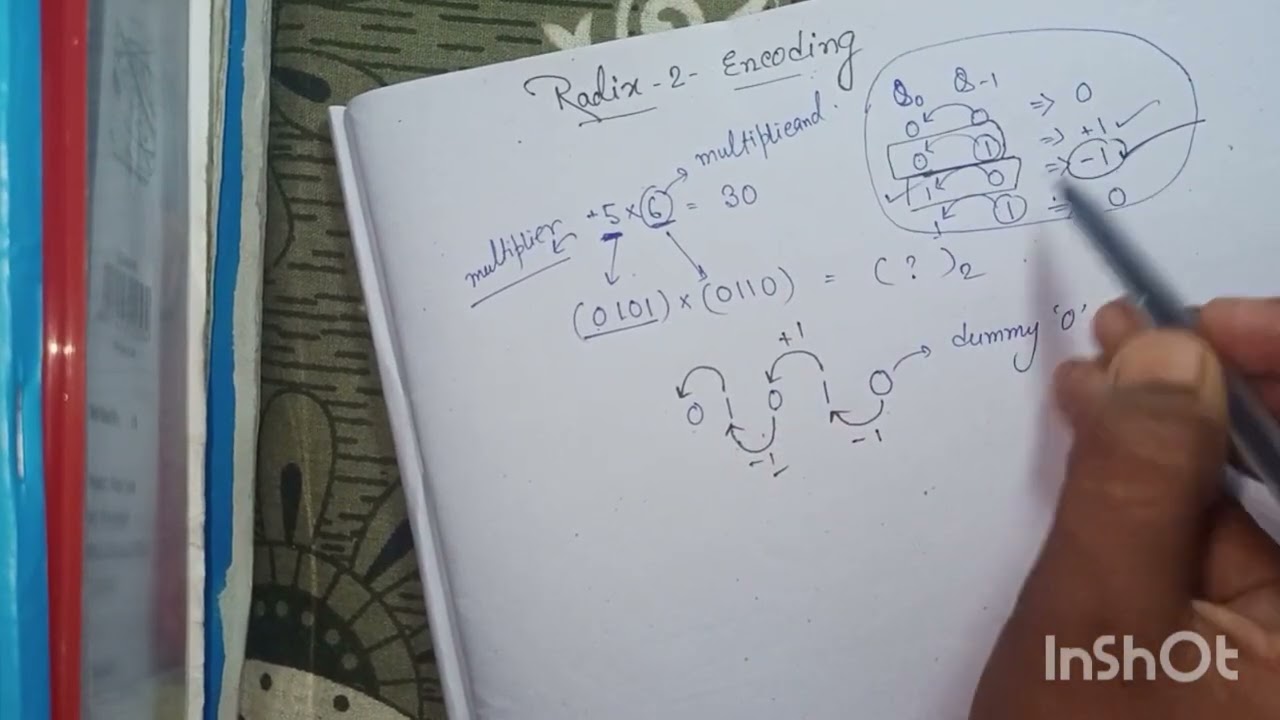 Radix-2- Encoding
Q0 Q-1
0 0 => 0
0 1 => +1
1 0 => -1
1 1 => 0
multiplicand
multiplier +5 × 6 = 30
(0101) × (0110) = (?)2
+1
0 1 0 1 0 dummy '0'
-1 -1
InShOt